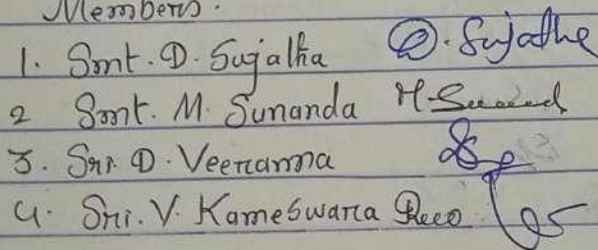 Members.
1. Smt. D. Sujatha D. Sujathe
2 Smt. M. Sunanda M.
3. Sri. D. Veeranna
4. Sri. V. Kameswara Rao